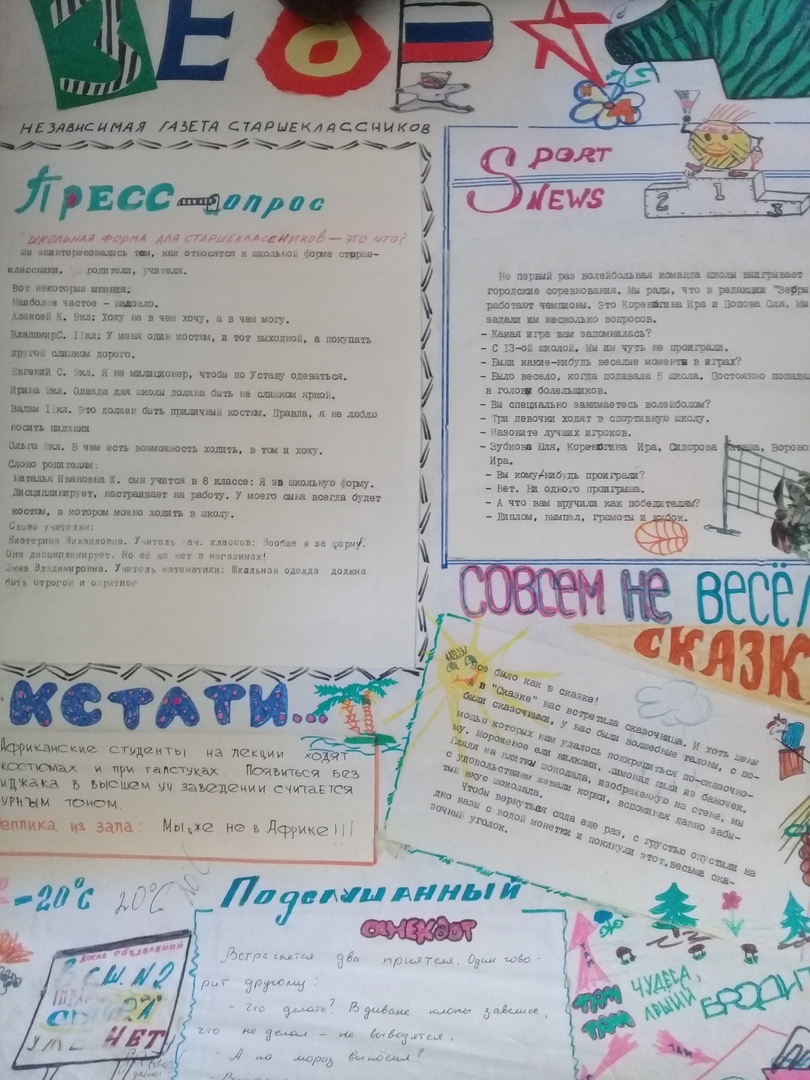 ЗЕБРА
НЕЗАВИСИМАЯ ГАЗЕТА СТАРШЕКЛАССНИКОВ
ПРЕСС-опрос
ШКОЛЬНАЯ ФОРМА ДЛЯ СТАРШЕКЛАССНИКОВ — ЭТО ЧТО?
Мы заинтересовались тем, как относятся к школьной форме старше-
классники, родители, учителя.
Вот некоторые мнения:
Наиболее частое - надоело.
Алексей К. 9кл: Хожу не в чем хочу, а в чем могу.
ВладимирС. 11кл: У меня один костюм, и тот выходной, а покупать
другой слишком дорого.
Евгений С. 9кл. Я не милиционер, чтобы по Уставу одеваться.
Ирина 9кл. Одежда для школы должна быть не слишком яркой.
Вадим 11кл. Это должен быть приличный костюм. Правда, я не люблю
носить пиджаки
Ольга 9кл. В чем есть возможность ходить, в том и хожу.
Слово родителям:
Наталья Ивановна К. сын учится в 8 классе: Я за школьную форму.
Дисциплинирует, настраивает на работу. У моего сына всегда будет
костюм, в котором можно ходить в школу.
Слово учителям:
Екатерина Михайловна. Учитель нач. классов: Вообще я за форму.
Она дисциплинирует. Но её же нет в магазинах!
Владимировна. Учитель математики: Школьная одежда должна
быть строгой и опрятной
SPORT
NEWS
2 1 3
Не первый раз волейбольная команда школы выигрывает
городские соревнования. Мы рады, что в редакции "Зебры"
работают чемпионы. Это Коренюгина Ира и Попова Оля. Мы
задали им несколько вопросов.
- Какая игра вам запомнилась?
- С 13-ой школой. Мы им чуть не проиграли.
- Были какие-нибудь веселые моменты в играх?
- Было весело, когда подавала 5 школа. Постоянно попада
в головы болельщиков.
- Вы специально занимаетесь волейболом?
- Три девочки ходят в спортивную школу.
- Назовите лучших игроков.
- Зубкова Юля, Ира, Сидорова Наташа, Ворон
Ира.
- Вы кому-нибудь проиграли?
- Нет. Ни одного проигрыша.
- А что вам вручили как победителям?
- Диплом, вымпел, грамоты и кубок.
СОВСЕМ НЕ ВЕСЁЛ
СКАЗК
Все было как в сказке!
в "Сказке" нас встретила сказочница. И хоть цены
были сказочными, у нас были волшебные талоны, с по-
мощью которых нам удалось подкрепиться по-сказочно-
му. Мороженое ели вилками, лимонад пили из баночек.
Глядя на плитки шоколада, изображенную на стене, мы
с удовольствием жевали коржи, вспоминая давно забы-
тый вкус шоколада.
Чтобы вернуться сюда еще раз, с грустью опустили на
дно вазы с водой монетки и покинули этот, весьма ска-
зочный уголок.
КСТАТИ...
Африканские студенты на лекции ходят
костюмах и при галстуках. Появиться без
иджака в высшем уч заведении считается
урным тоном.
еплика из зала: Мы же не в Африке!!!
-20°C 20°C
Подслушанный
анекдот
Встречаются два приятеля. Один гово-
рит другому:
- Что делать? В диване клопы завелись,
что не делал - не выводятся.
- А на мороз выносил?
ДОСКА ОБЪЯВЛЕНИЙ
В СШ. N2
УЖЕ НЕТ
ТАМ
ТАМ
ТАМ
ЧУДЕСА,
ЛЕШИЙ
БРОДИТ
ТАМ